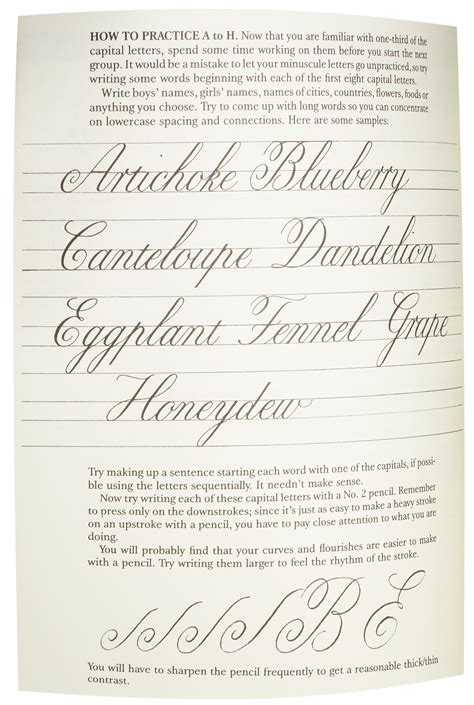 HOW TO PRACTICE A to H. Now that you are familiar with one-third of the
capital letters, spend some time working on them before you start the next
group. It would be a mistake to let your minuscule letters go unpracticed, so try
writing some words beginning with each of the first eight capital letters.
Write boys' names, girls' names, names of cities, countries, flowers, foods or
anything you choose. Try to come up with long words so you can concentrate
on lowercase spacing and connections. Here are some samples:
Artichoke Blueberry
Canteloupe Dandelion
Eggplant Fennel Grape
Honeydew
Try making up a sentence starting each word with one of the capitals, if possi-
ble using the letters sequentially. It needn't make sense.
Now try writing each of these capital letters with a No. 2 pencil. Remember
to press only on the downstrokes; since it's just as easy to make a heavy stroke
on an upstroke with a pencil, you have to pay close attention to what you are
doing.
You will probably find that your curves and flourishes are easier to make
with a pencil. Try writing them larger to feel the rhythm of the stroke.
B E
You will have to sharpen the pencil frequently to get a reasonable thick/thin
contrast.